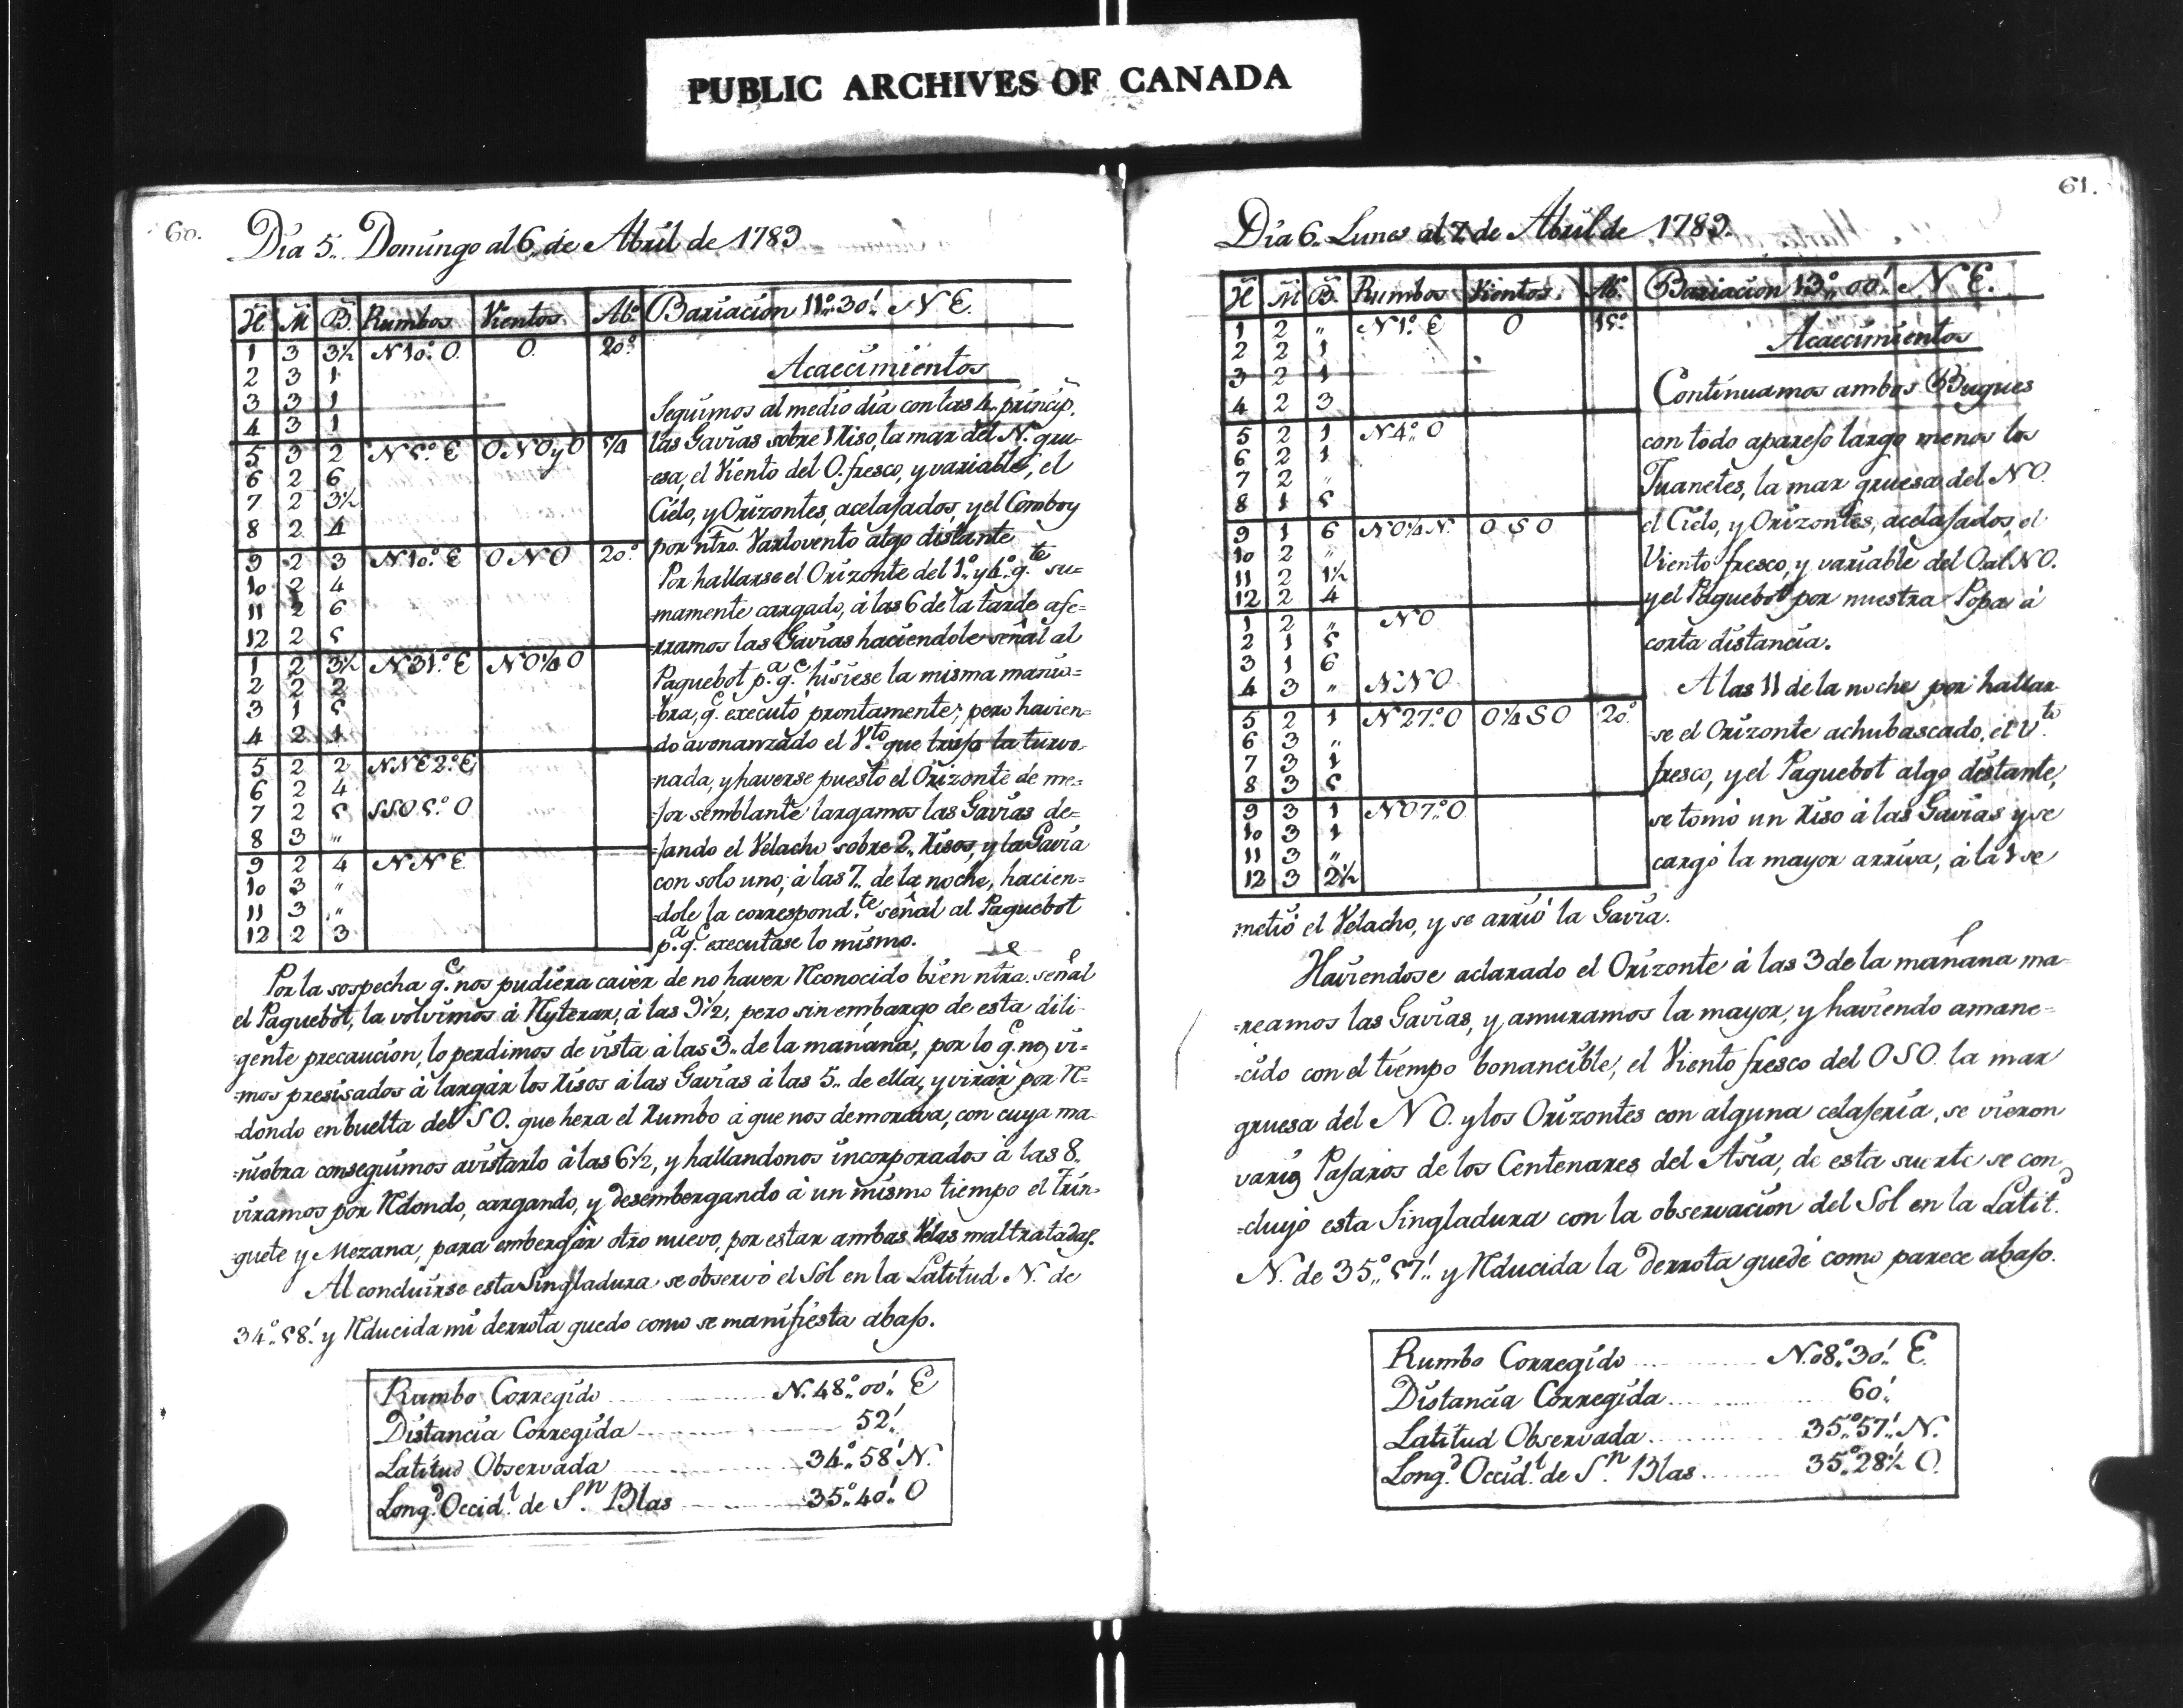 PUBLIC ARCHIVES OF CANADA
60.
Dia 5,, Domingo al 6,, de Abril de 1789
H M B. Rumbos Vientos Ab.º Bariacion 11º,,30',, N E.
1 3 3½ N 10º. O. O. 20º
2 3 1
3 3 1
4 3 1
5 3 2 N 5º. E ONO y O ¾
6 2 6
7 2 3½
8 2 4
9 2 3 N 10º. E ONO 20º
10 2 4
11 2 6
12 2 5
1 2 3½ N 31º. E NO¼O
2 2 2
3 1 5
4 2 1
5 2 2 NNE 2º. E
6 2 4
7 2 5 SSO 5º. O
8 3 ,,
9 2 4 NNE
10 3 ,,
11 3 ,,
12 2 3
Acaecimientos
Seguimos al medio dia con las 4,, princip.
las Gavias sobre 1 Riso, la mar del N. gru-
esa, el Viento del O. fresco, y variable, el
Cielo, y Orizontes, acelajados, y el Comboy
por ntro. Varlovento algo distante
Por hallarse el Orizonte del 1º. y 4º. q.te su=
mamente cargado, á las 6 de la tarde afe=
rramos las Gavias haciendole señal al
Paquebot p.a q.e hisiese la misma manio=
bra, q.e executó prontamente; pero havien=
do avonanzado el V.to que trajo la turvo
nada, y haverse puesto el Orizonte de me=
jor semblante largamos las Gavias de=
jando el Velacho sobre 2,, Risos, y la Gavia
con solo uno; á las 7,, de la noche, hacien=
dole la correspond.te señal al Paquebot
p.a q.e executase lo mismo.
Por la sospecha q.e nos pudiera caver de no haver Rconocido bien ntra. señal
el Paquebot, la volvimos á Ryterar, á las 9½, pero sin embargo de esta dili-
gente precaucion, lo perdimos de vista á las 3,, de la mañana, por lo q.e nos vi=
mos presisados á largar los Risos á las Gavias á las 5,, de ella, y virar por R=
dondo en buelta del SO. que hera el Rumbo á que nos demorava, con cuya ma
niobra conseguimos avistarlo á las 6½, y hallandonos incorporados á las 8,,
viramos por Rdondo, cargando, y desembergando á un mismo tiempo el Trin-
quete y Mezana, para embergar otro nuevo, por estar ambas Velas maltratadas.
Al concluirse esta Singladura se observó el Sol en la Latitud N. de
34º,,58'. y Rducida mi derrota quedo como se manifiesta abajo.
Rumbo Corregido N. 48º,,00',, E
Distancia Corregida 52',,
Latitud Observada 34º,,58' N.
Long.d Occid.l de S.n Blas 35º,,40',, O
61.
Dia 6,, Lunes al 7 de Abril de 1789.
H M B. Rumbos Vientos. Ab.º Bariacion 13º,,00',, N E.
1 2 ,, N 1º. E O 15º
2 2 1
3 2 1
4 2 3
5 2 1 N 4º. O
6 2 1
7 2 ,,
8 1 5
9 1 6 NO¼N. OSO
10 2 ,,
11 2 1½
12 2 4
1 2 ,, NO
2 1 5
3 1 6
4 3 ,, NNO
5 2 1 N 27º. O O¼SO 20º
6 3 ,,
7 3 1
8 3 5
9 3 1 NO 7º. O
10 3 1
11 3 ,,
12 3 2½
Acaecimientos
Continuamos ambos Buques
con todo aparejo largo menos los
Juanetes, la mar gruesa del NO.
el Cielo, y Orizontes, acelajados, el
Viento fresco, y variable del O. al NO.
y el Paquebot por nuestra Popa á
corta distancia.
A las 11 de la noche por hallar
se el Orizonte achubascado, el V.to
fresco, y el Paquebot algo distante,
se tomó un Riso á las Gavias y se
cargó la mayor arriva, á la 1 se
metió el Velacho, y se arrió la Gavia.
Haviendose aclarado el Orizonte á las 3 de la mañana ma-
reamos las Gavias, y amuramos la mayor, y haviendo amane=
cido con el tiempo bonancible, el Viento fresco del OSO. la mar
gruesa del NO. y los Orizontes con alguna celajeria, se vieron
varios Pajaros de los Centenares del Asia, de esta suerte se con
cluyó esta Singladura con la observacion del Sol en la Latit.d
N. de 35º,,57',, y Rducida la derrota quedé como parece abajo.
Rumbo Corregido N. 08º,,30',, E.
Distancia Corregida 60',,
Latitud Observada 35º,,57',, N.
Long.d Occid.l de S.n Blas 35º,,28'½ O.